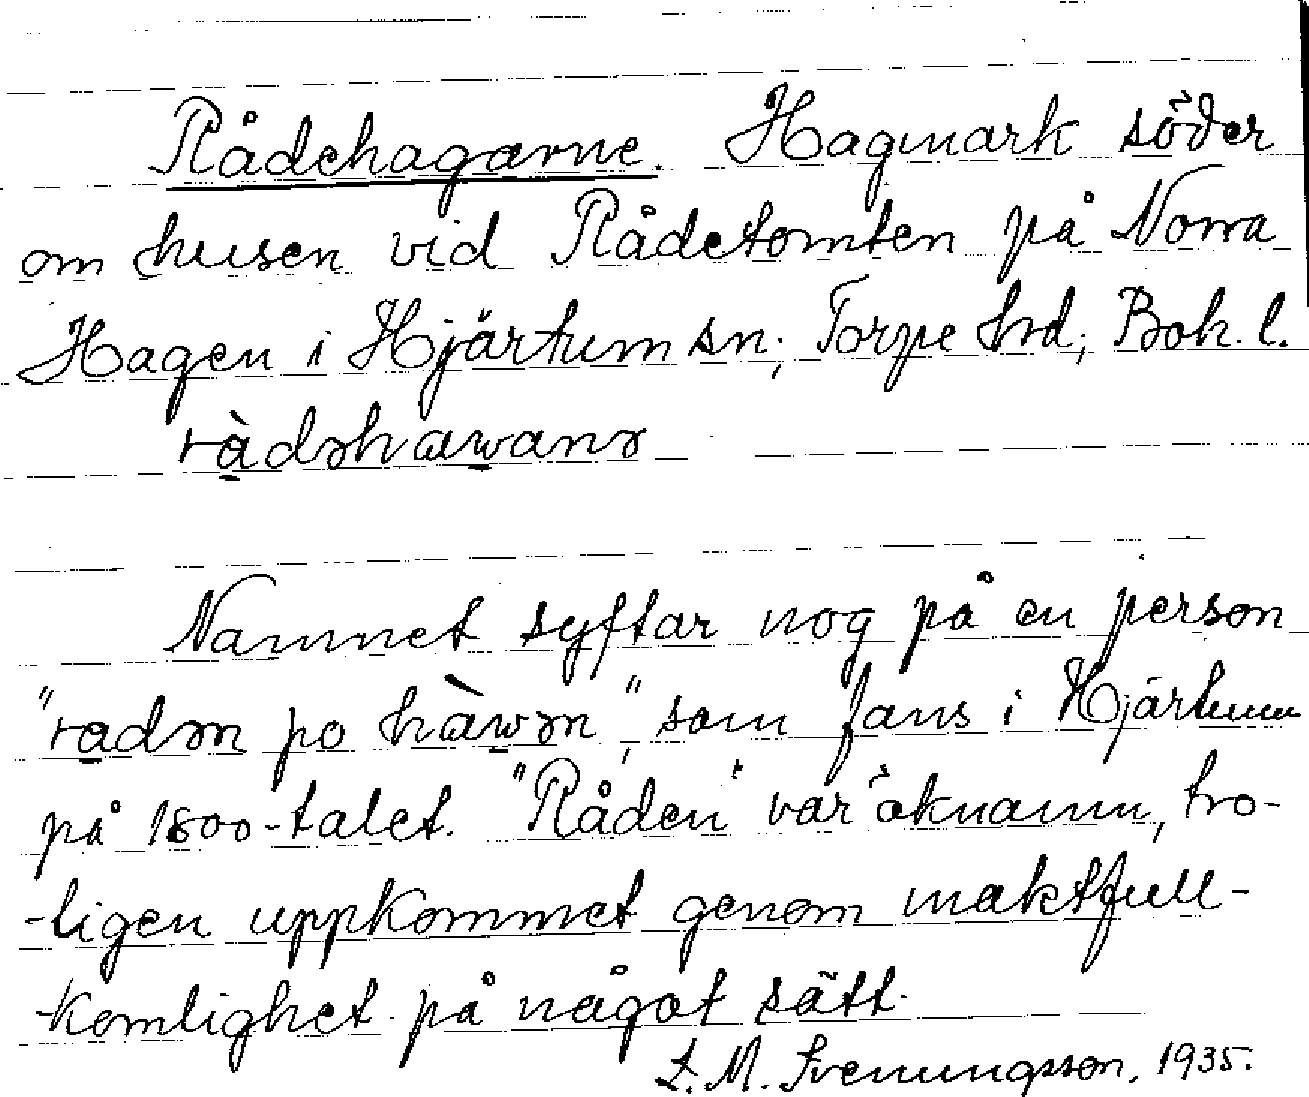 Rådehagarne. Hagmark söder
om husen vid Rådetomten på Norra
Hagen i Hjärtum sn; Torpe hd; Boh. l.
ràdəhawanə
Namnet syftar nog på en person
"radən po hàwən", som fans i Hjärtum
på 1800-talet. "Råden" var öknamn, tro-
-ligen uppkommet genom maktfull-
-komlighet på något sätt.
L. M. Svenungsson, 1935.